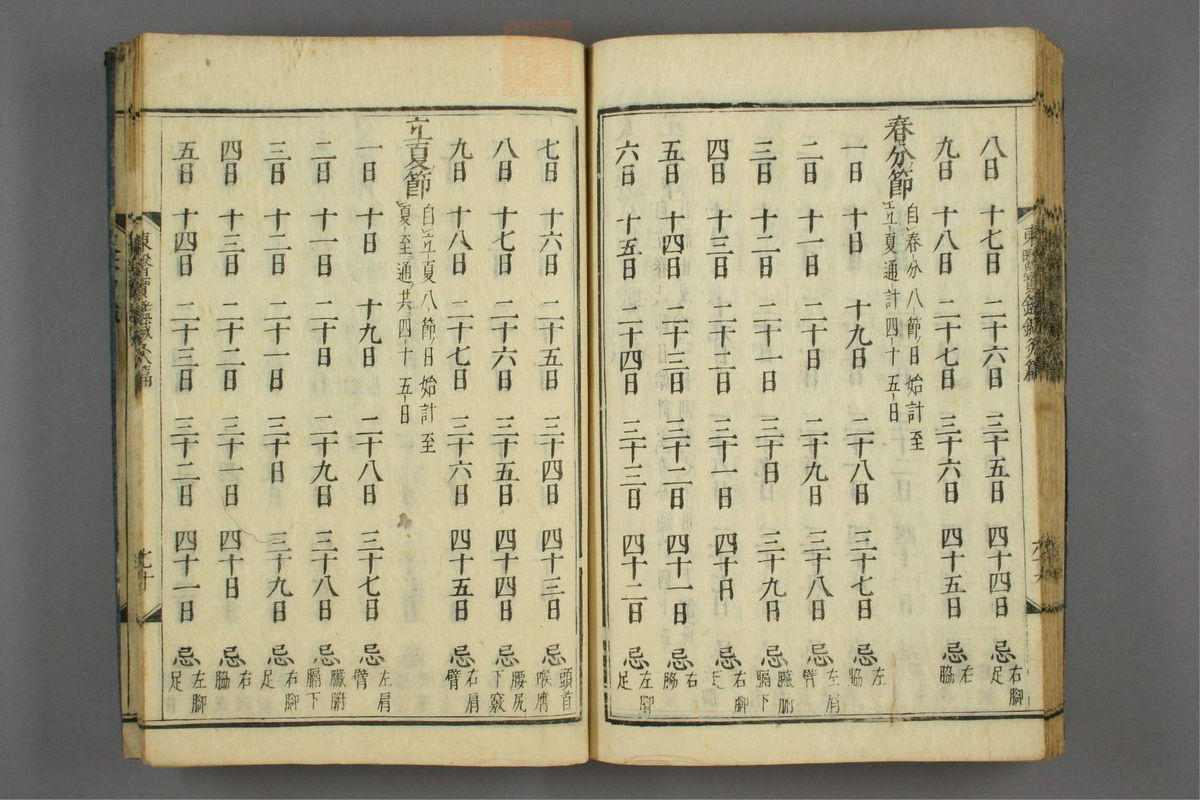 東醫寶鑑鍼灸篇
八日 十七日 二十六日 三十五日 四十四日 忌 右腳足
九日 十八日 二十七日 三十六日 四十五日 忌 右脇
春分節 自春分八節日始計至
立夏通計四十五日
一日 十日 十九日 二十八日 三十七日 忌 左脇
二日 十一日 二十日 二十九日 三十八日 忌 左肩臂
三日 十二日 二十一日 三十日 三十九日 忌 臟腑膈下
四日 十三日 二十二日 三十一日 四十日 忌 右腳足
五日 十四日 二十三日 三十二日 四十一日 忌 右脇
六日 十五日 二十四日 三十三日 四十二日 忌 左腳足
七日 十六日 二十五日 三十四日 四十三日 忌 頭首喉膺
八日 十七日 二十六日 三十五日 四十四日 忌 腰尻下竅
九日 十八日 二十七日 三十六日 四十五日 忌 右肩臂
立夏節 自立夏八節日始計至
夏至通共四十五日
一日 十日 十九日 二十八日 三十七日 忌 左肩臂
二日 十一日 二十日 二十九日 三十八日 忌 臟腑膈下
三日 十二日 二十一日 三十日 三十九日 忌 右腳足
四日 十三日 二十二日 三十一日 四十日 忌 右脇
五日 十四日 二十三日 三十二日 四十一日 忌 左腳足
東醫寶鑑鍼灸篇 九十